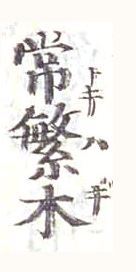 常繁木
トキハギ